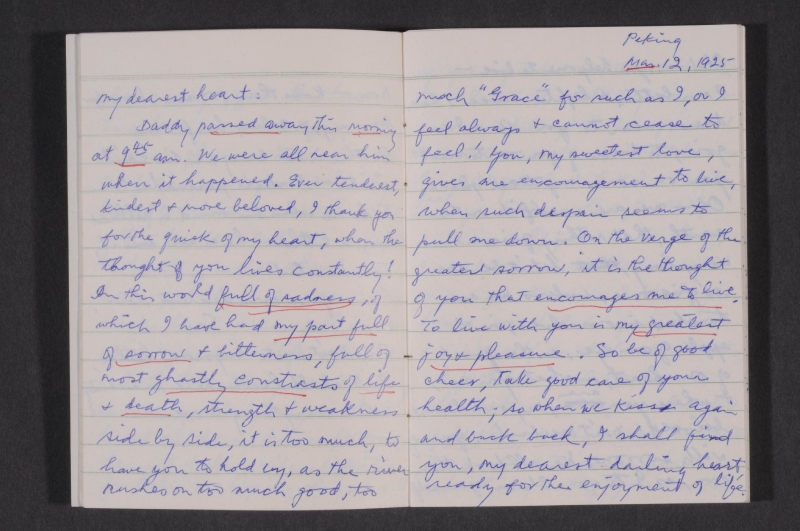 My dearest heart:
Daddy passed away this morning
at 9 45 am. We were all near him
when it happened. Ever tenderest,
kindest & more beloved, I thank you
for the quick of my heart, when the
thought of you lives constantly!
In this world full of sadness, of
which I have had my part full
of sorrow & bitterness, full of
most ghastly constrasts of life
& death, strength & weakness
side by side, it is too much, to
have you to hold by, as the river
rushes on too much good, too
Peking
Mar. 12, 1925
much "Grace" for such as I, or I
feel always & cannot cease to
feel! You, my sweetest love,
gives me encouragement to live,
when such despair seems to
pull me down. On the verge of the
greatest sorrow, it is the thought
of you that encourages me to live.
To live with you is my greatest
joy & pleasure. So be of good
cheer, take good care of your
health; so when we kiss again
and back, I shall find
you, my dearest darling heart
ready for the enjoyment of life.